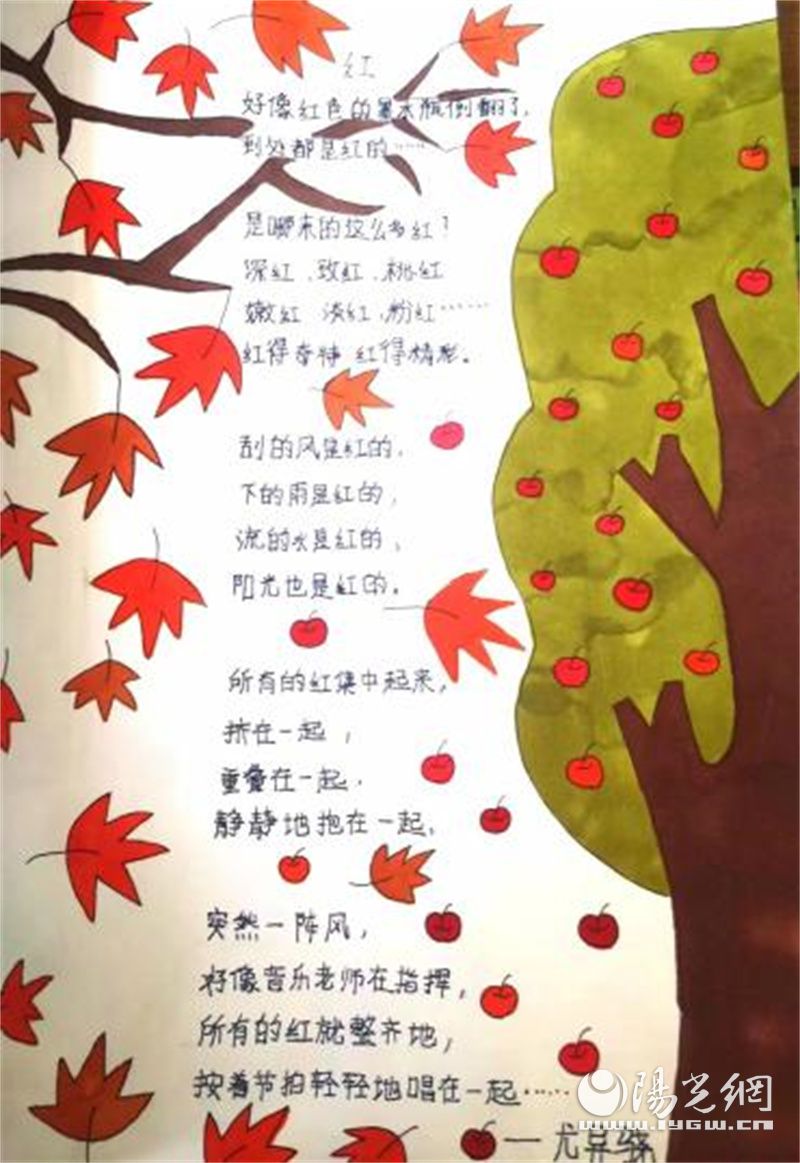 红
好像红色的墨水瓶倒翻了，
到处都是红的……
是哪来的这么多红？
深红、玫红、桃红
嫩红 淡红、粉红……
红得奇特 红得精彩。
刮的风是红的，
下的雨是红的，
流的水是红的，
阳光也是红的。
所有的红集中起来，
挤在一起，
重叠在一起，
静静地抱在一起。
突然一阵风，
好像音乐老师在指挥，
所有的红就整齐地，
按着节拍轻轻地唱在一起……
——尤异
陽光網
www.iygw.cn